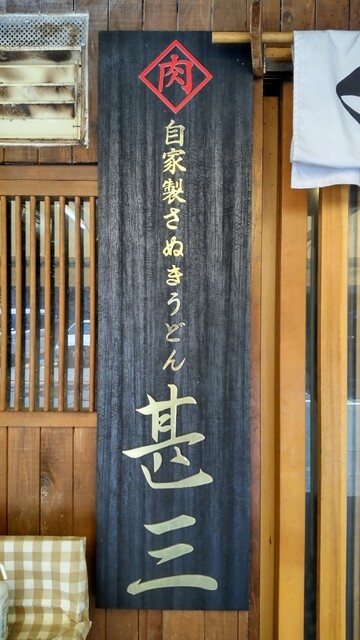 肉
自家製さぬきうどん
甚三